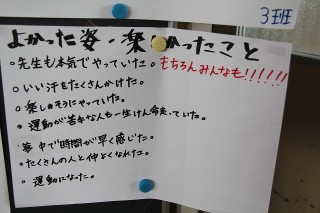 3班
よかった姿・楽しかったこと
○先生も本気でやっていた。もちろんみんなも!!!!!!
○いい汗をたくさんかけた。
○楽しそうにやっていた。
○運動が苦手な人も一生けん命走っていた。
夢中で時間が早く感じた。
○たくさんの人と仲よくなれた。
○運動になった。